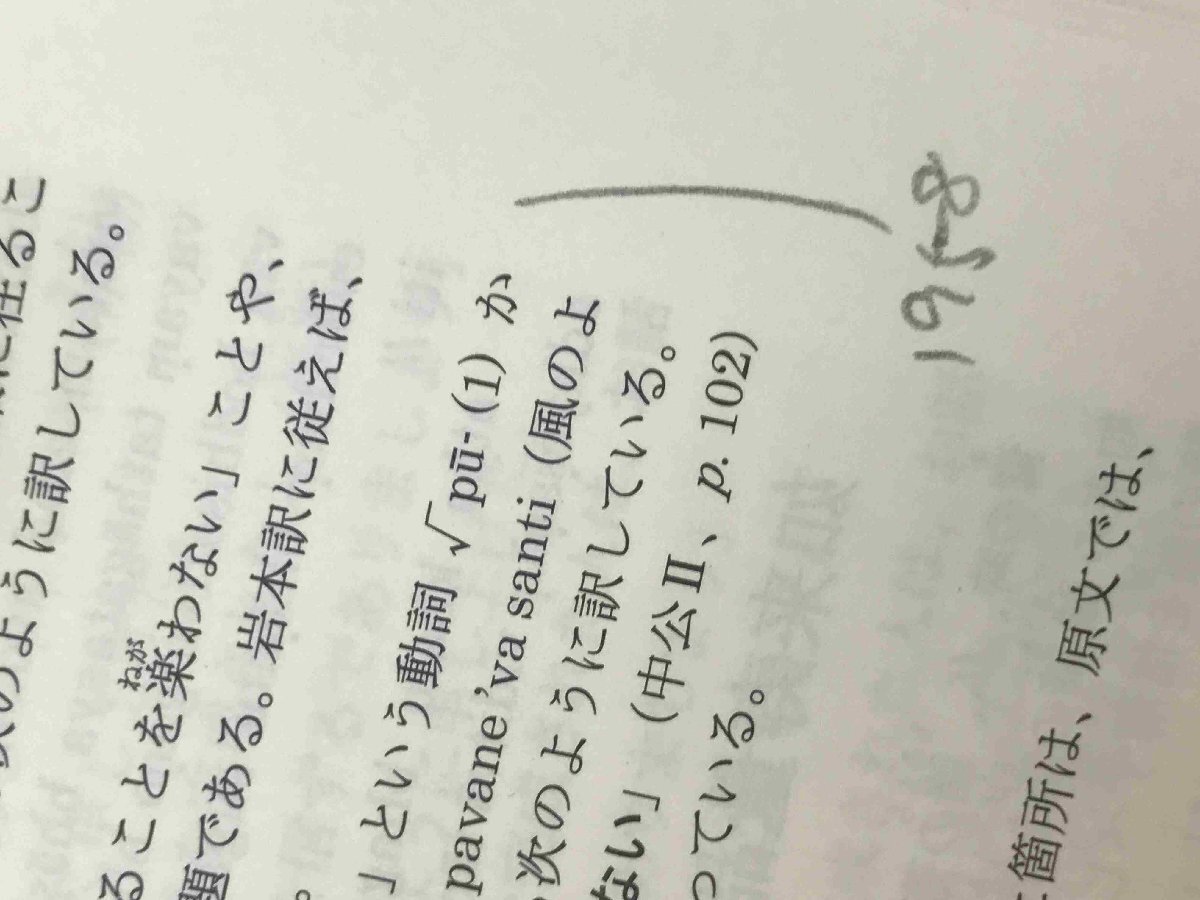 に住るこ
のように訳している。
ることを楽わない」ことや、
ねが
題である。岩本訳に従えば、
。
」という動詞 √pū-(1) か
pavane'va santi (風のよ
次のように訳している。
ない」(中公Ⅱ、p. 102)
っている。
1958
箇所は、原文では、